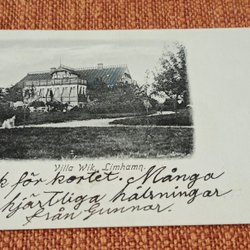 Villa Wik, Limhamn.
k för kortet. Många
hjärtliga hälsningar
från Gunnar.